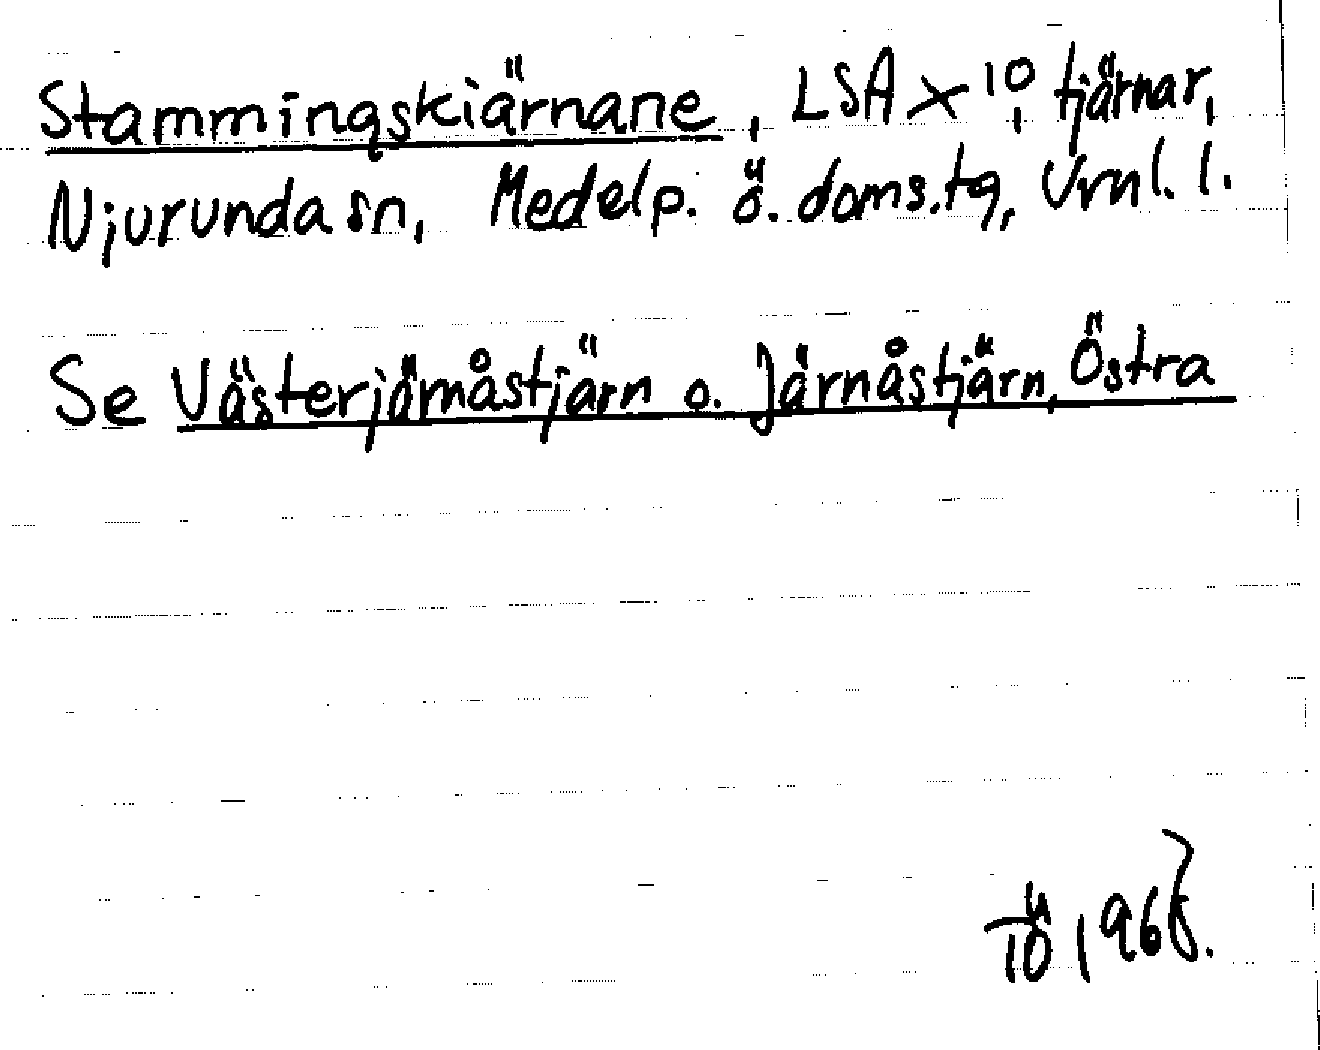 Stammingskiärnane, LSA X 10, tjärnar,
Njurunda sn, Medelp. ö. doms.tg, Vrnl. l.
Se Västerjärnåstjärn o. Järnåstjärn, Östra
TÖ 1968.